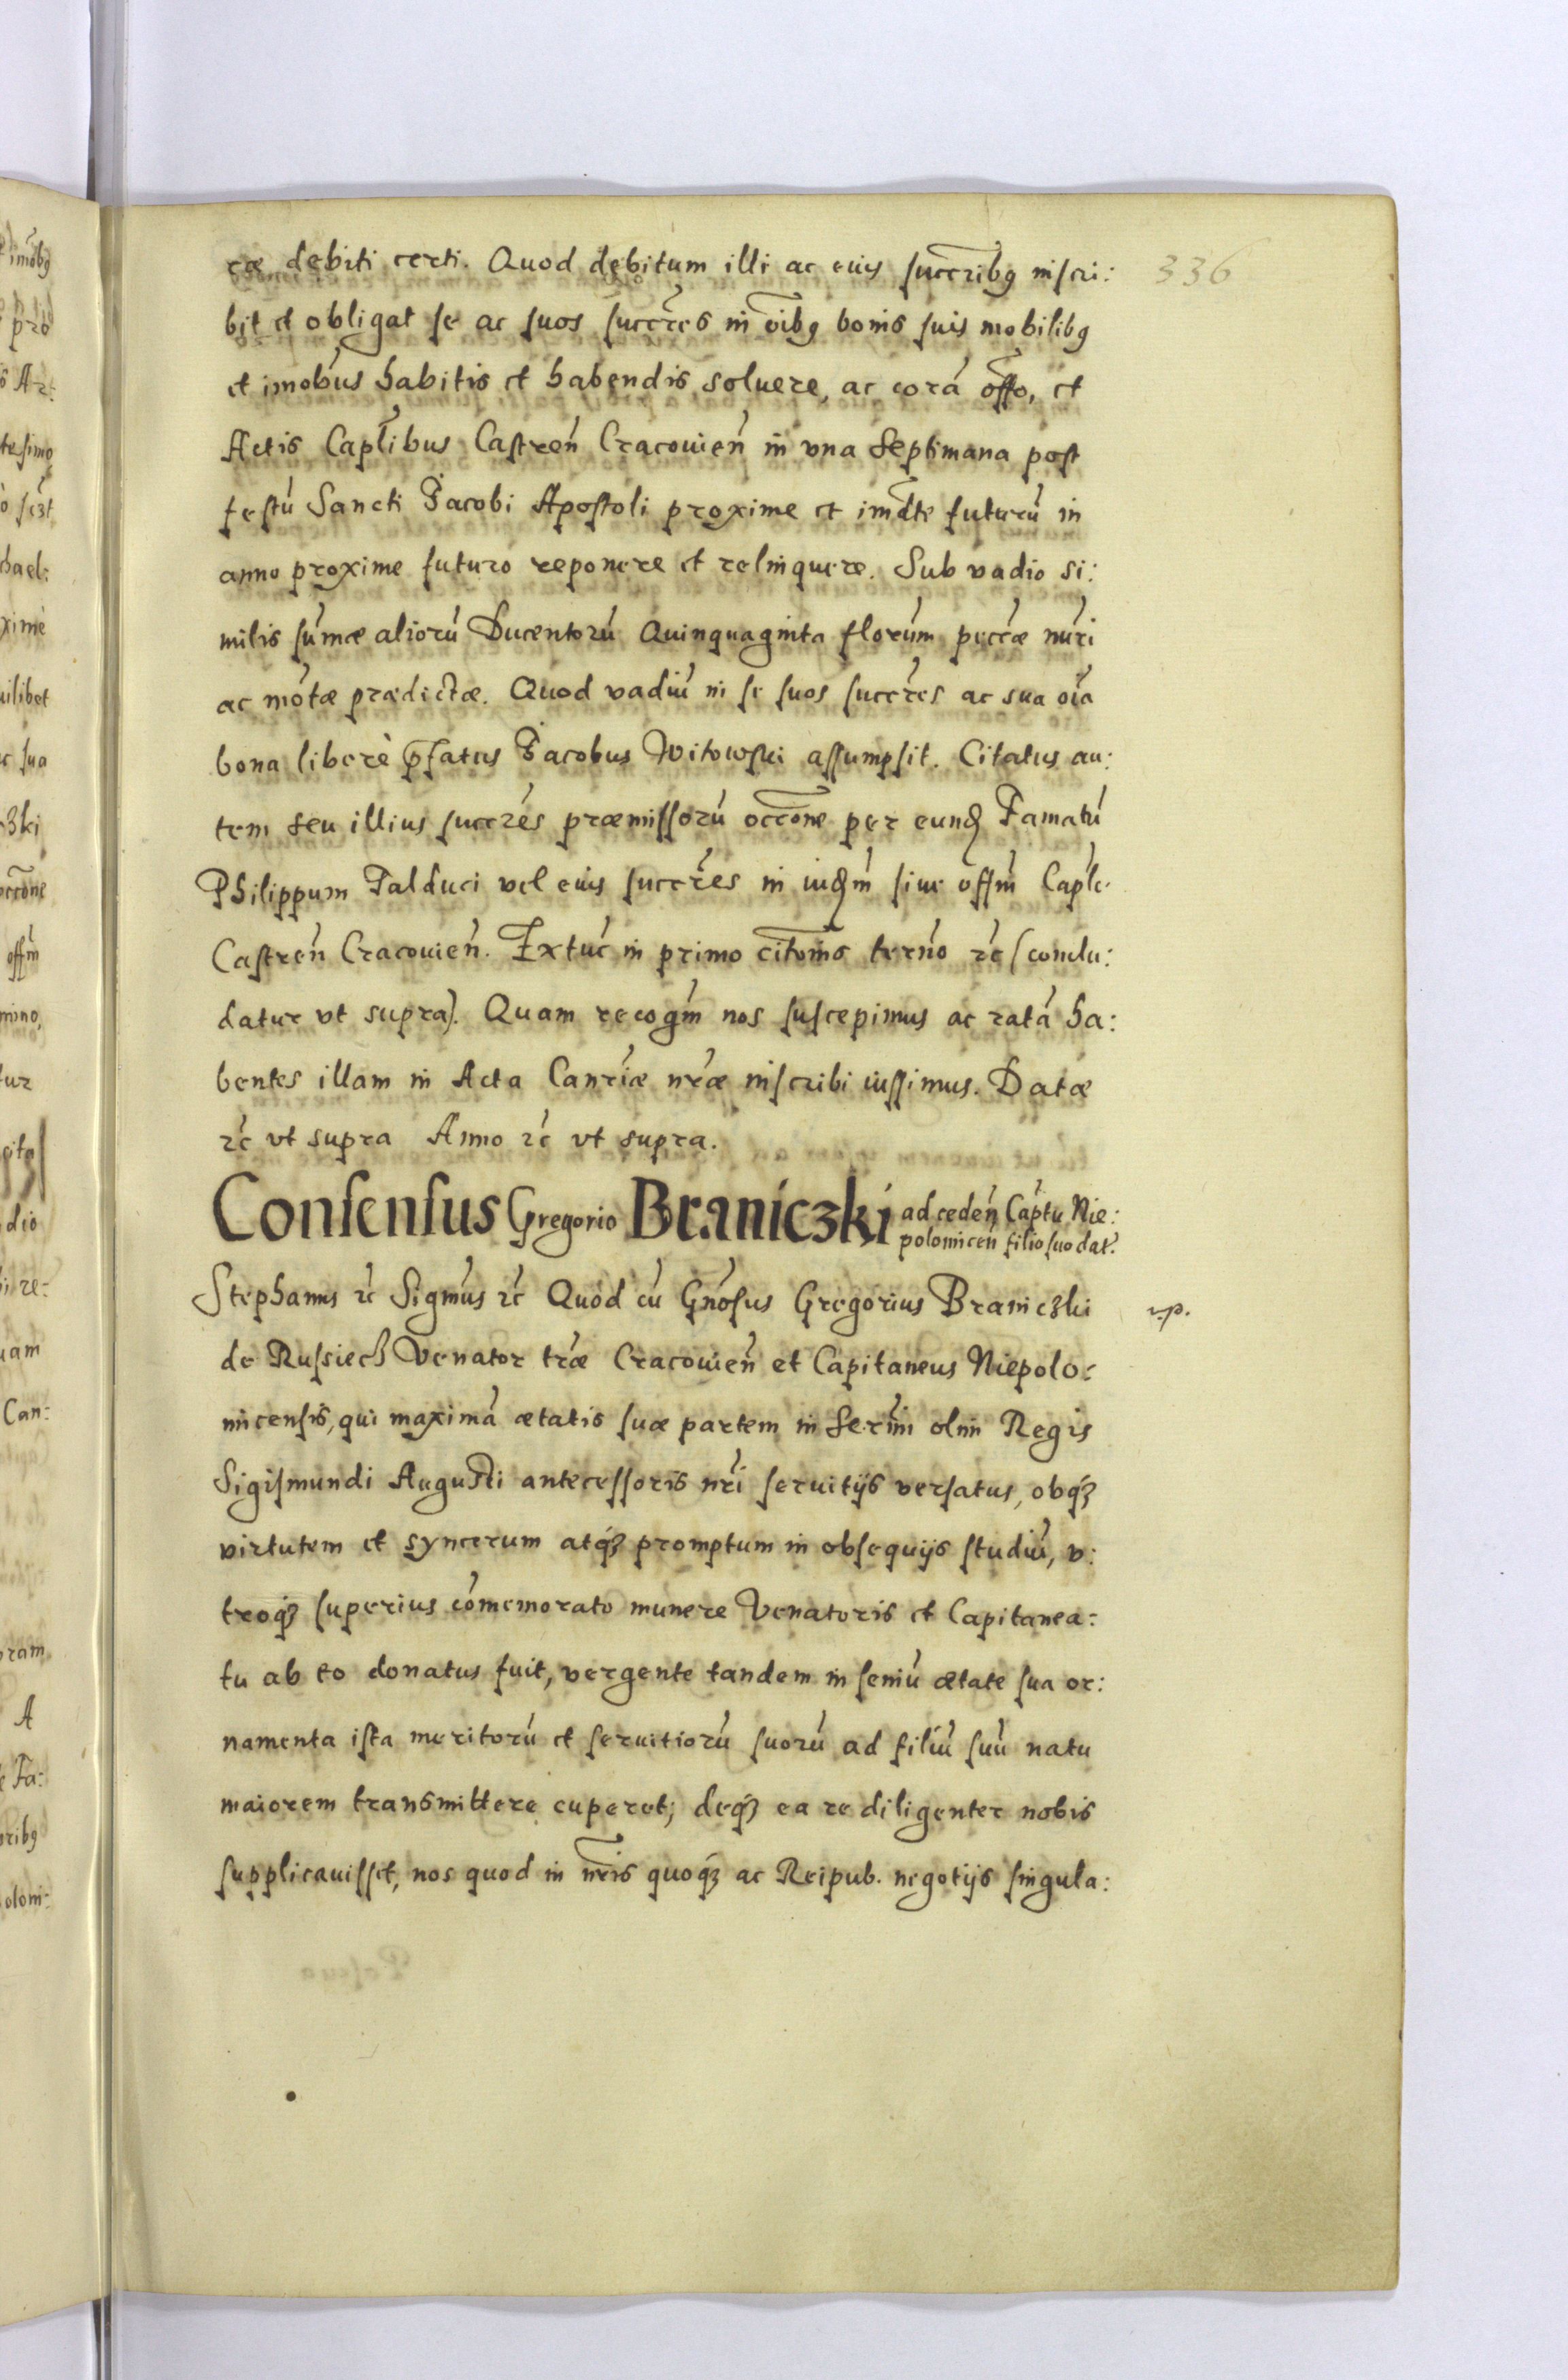 ræ debiti certi. Quod debitum illi ac eius succribq inscri: 336
bit et obligat se ac suos succres in oibq bonis suis mobilibq
et imobus habitis et habendis soluere, ac corã offo, et
Actis Caplibus Castren Cracouien in vna Septimana post
festũ Sancti Jacobi Apostoli proxime et imdte futurũ in
anno proxime futuro reponere et relinquere. Sub vadio si:
milis sumæ aliorũ Ducentorũ Quinquaginta florum peccæ nuri
ac motæ prædictæ. Quod vadiũ in se suos succres ac sua oia
bona liberè pfatus Jacobus Witowski assumpsit. Citatus au:
tem seu illius succres præmissorũ occone per eund Famatũ
Philippum Talduci vel eius succres in iudm siue offm Caple
Castren Cracouien. Extuc in primo citonis terno rc (conclu:
datur vt supra). Quam recogm nos suscepimus ac ratã ha:
bentes illam in Acta Canriæ nræ inscribi iussimus. Datæ
rc vt supra Anno rc vt supra.
Consensus Gregorio Braniczki ad ceden Captu Nie:
polomicen filio suo dat.
Stephanus rc Sigmus rc Quod cũ Gnosus Gregorius Braniczki r.p.
de Russiech Venator træ Cracouien et Capitaneus Niepolo:
micensis, qui maximã ætatis suæ partem in Sermi olim Regis
Sigismundi Augusti antecessoris nri seruitijs versatus, obqз
virtutem et syncerum atqз promptum in obsequijs studiũ, v:
troqз superius comemorato munere Venatoris et Capitanea:
tu ab eo donatus fuit, vergente tandem in seniũ ætate sua or:
namenta ista meritorũ et seruitiorũ suorũ ad filiũ suũ natu
maiorem transmittere cuperet; deqз ea re diligenter nobis
supplicauisset, nos quod in nris quoqз ac Reipub. negotijs singula: